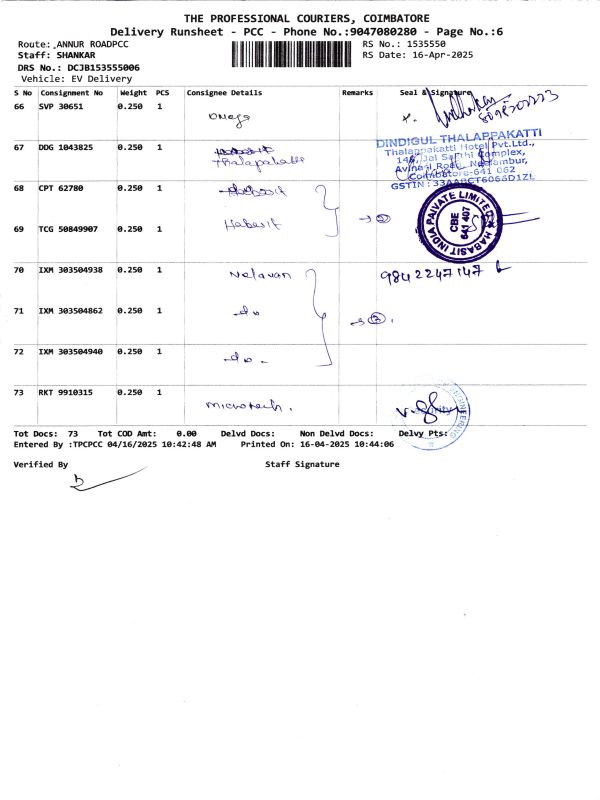 THE PROFESSIONAL COURIERS, COIMBATORE
Delivery Runsheet - PCC - Phone No.:9047080280 - Page No.:6
Route: ANNUR ROADPCC RS No.: 1535550
Staff: SHANKAR RS Date: 16-Apr-2025
DRS No.: DCJB153555006
Vehicle: EV Delivery
S No Consignment No Weight PCS Consignee Details Remarks Seal & Signature
66 SVP 30651 0.250 1 Omega
67 DDG 1043825 0.250 1 Thalapakatti
DINDIGUL THALAPPAKATTI
Thalappakatti Hotel Pvt.Ltd.,
148, Jai Sakthi Complex,
Avinasi Road, Neelambur,
Coimbatore-641 062
GSTIN : 33AABCT6066D1ZL
68 CPT 62780 0.250 1 Habasit
69 TCG 50849907 0.250 1 Habasit → 2
HABASIT INDIA PRIVATE LIMITED
CBE
641 407
70 IXM 303504938 0.250 1 9842247147
71 IXM 303504862 0.250 1 do → 3.
72 IXM 303504940 0.250 1 do -
73 RKT 9910315 0.250 1 microtech.
Tot Docs: 73 Tot COD Amt: 0.00 Delvd Docs: Non Delvd Docs: Delvy Pts:
Entered By :TPCPCC 04/16/2025 10:42:48 AM Printed On: 16-04-2025 10:44:06
Verified By Staff Signature